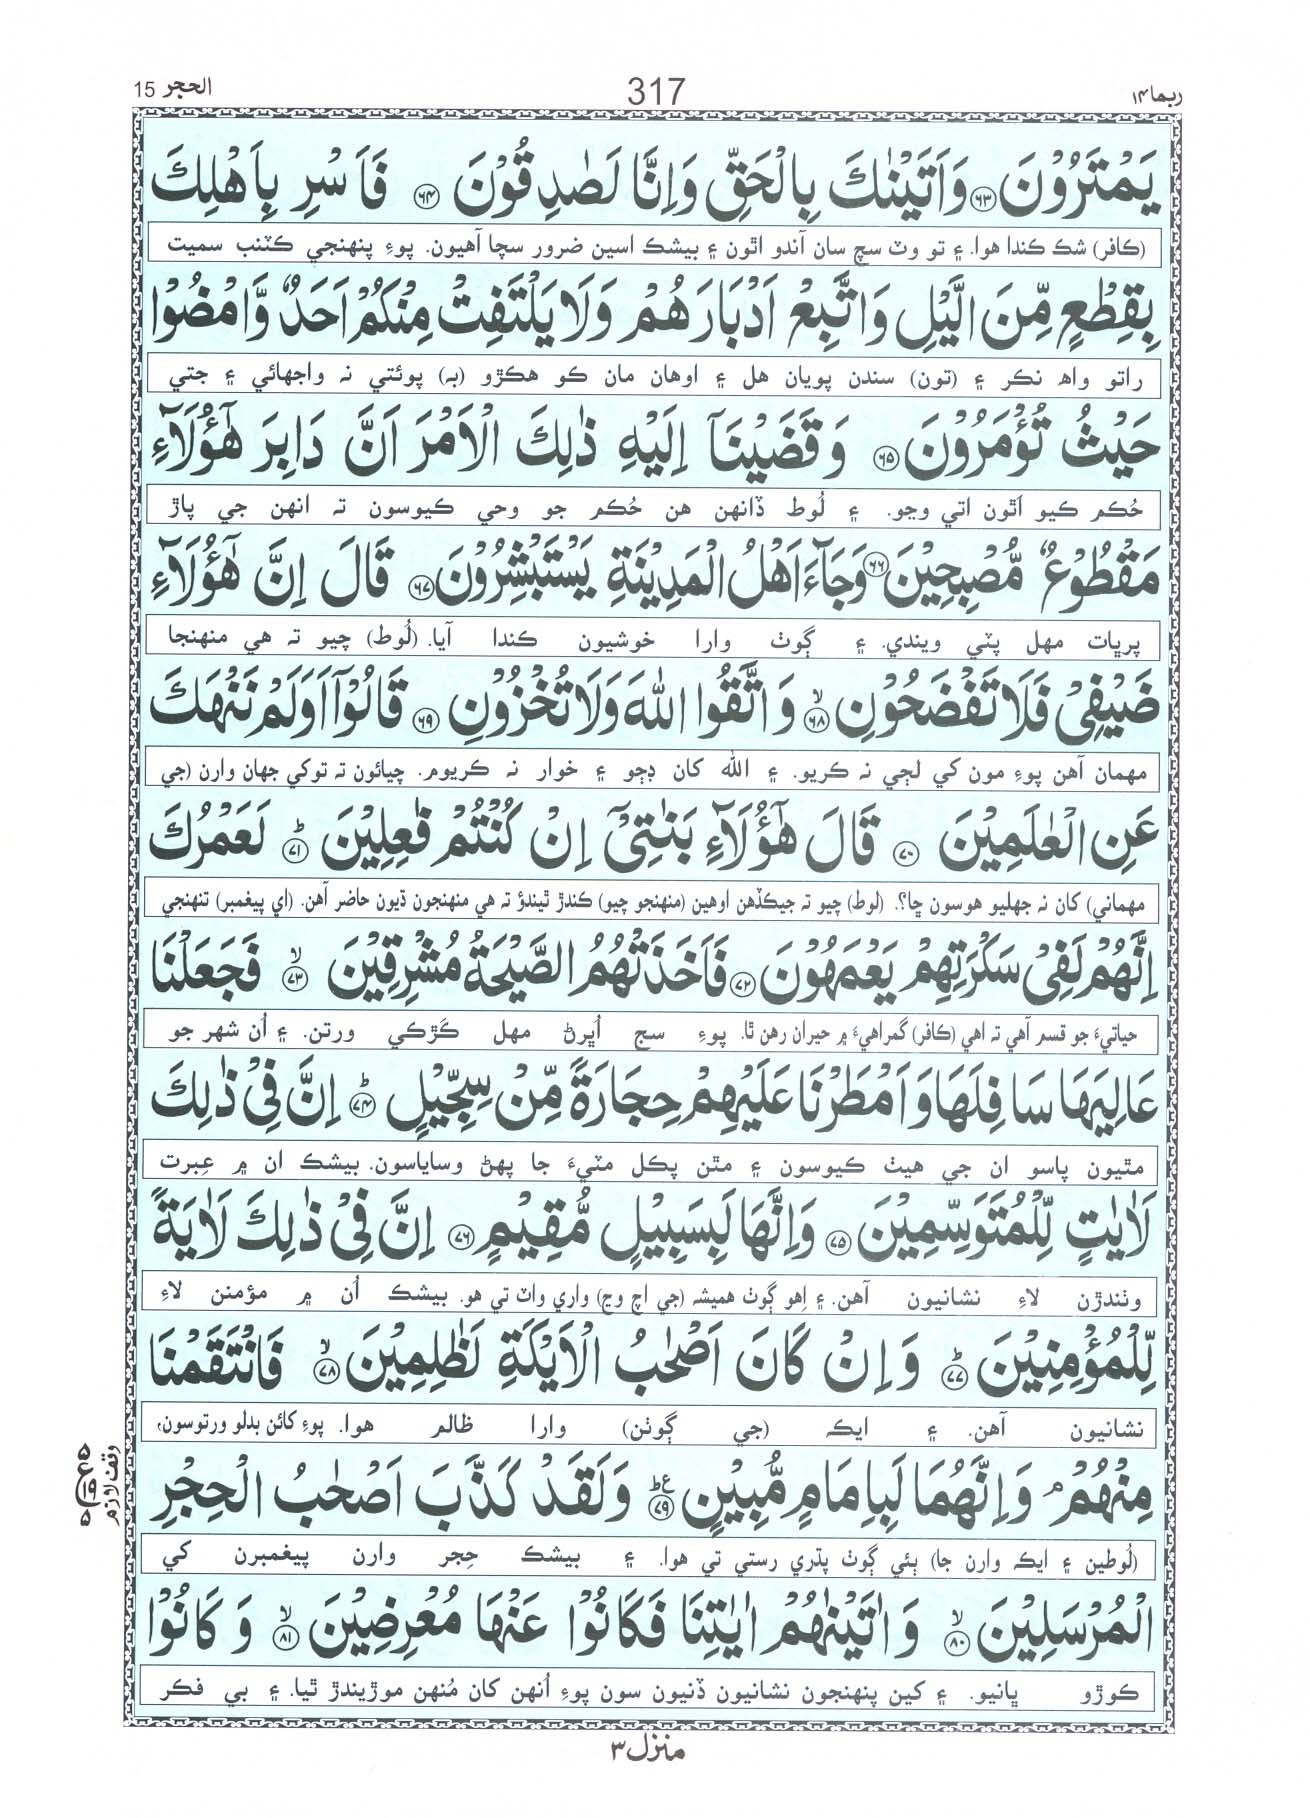 ربما١٤
317
الحجر 15
يَمْتَرُوْنَ ۶۳ وَاَتَيْنٰكَ بِالْحَقِّ وَاِنَّا لَصٰدِقُوْنَ ۶۴ فَاَسْرِ بِاَهْلِكَ
(ڪافر) شڪ ڪندا هوا. ۽ تو وٽ سچ سان آندو اٿون ۽ بيشڪ اسين ضرور سچا آهيون. پوءِ پنهنجي ڪٽنب سميت
بِقِطْعٍ مِّنَ الَّيْلِ وَاتَّبِعْ اَدْبَارَهُمْ وَلَا يَلْتَفِتْ مِنْكُمْ اَحَدٌ وَّامْضُوْا
راتو واھ نڪر ۽ (تون) سندن پويان هل ۽ اوهان مان ڪو هڪڙو (به) پوئتي نہ واجهائي ۽ جتي
حَيْثُ تُؤْمَرُوْنَ ۶۵ وَقَضَيْنَآ اِلَيْهِ ذٰلِكَ الْاَمْرَ اَنَّ دَابِرَ هٰٓؤُلَآءِ
حُڪم ڪيو اَٿون اتي وڃو. ۽ لُوط ڏانهن هن حُڪم جو وحي ڪيوسون تہ انهن جي پاڙ
مَقْطُوْعٌ مُّصْبِحِيْنَ ۶۶ وَجَآءَ اَهْلُ الْمَدِيْنَةِ يَسْتَبْشِرُوْنَ ۶۷ قَالَ اِنَّ هٰٓؤُلَآءِ
پرڀات مهل پٽي ويندي. ۽ ڳوٺ وارا خوشيون ڪندا آيا. (لُوط) چيو تہ هي منهنجا
ضَيْفِيْ فَلَا تَفْضَحُوْنِ ۶۸ۙ وَاتَّقُوا اللّٰهَ وَلَا تُخْزُوْنِ ۶۹ قَالُوْٓا اَوَلَمْ نَنْهَكَ
مهمان آهن پوءِ مون کي لڄي نہ ڪريو. ۽ الله کان ڊڄو ۽ خوار نہ ڪريوم. چيائون تہ توکي جهان وارن (جي
عَنِ الْعٰلَمِيْنَ ۷۰ قَالَ هٰٓؤُلَآءِ بَنٰتِيْٓ اِنْ كُنْتُمْ فٰعِلِيْنَ ۷۱ؕ لَعَمْرُكَ
مهماني) کان نہ جهليو هوسون ڇا؟. (لوط) چيو تہ جيڪڏهن اوهين (منهنجو چيو) ڪندڙ ٿيندؤ تہ هي منهنجون ڌيون حاضر آهن. (اي پيغمبر) تنهنجي
اِنَّهُمْ لَفِيْ سَكْرَتِهِمْ يَعْمَهُوْنَ ۷۲ فَاَخَذَتْهُمُ الصَّيْحَةُ مُشْرِقِيْنَ ۷۳ۙ فَجَعَلْنَا
حياتيءَ جو قسم آهي تہ اهي (ڪافر) گمراهيءَ ۾ حيران رهن ٿا. پوءِ سج اُڀرڻ مهل ڪَڙڪي ورتن. ۽ اُن شهر جو
عَالِيَهَا سَافِلَهَا وَاَمْطَرْنَا عَلَيْهِمْ حِجَارَةً مِّنْ سِجِّيْلٍ ۷۴ؕ اِنَّ فِيْ ذٰلِكَ
مٿيون پاسو ان جي هيٺ ڪيوسون ۽ مٿن پڪل مٽيءَ جا پهڻ وساياسون. بيشڪ ان ۾ عِبرت
لَاٰيٰتٍ لِّلْمُتَوَسِّمِيْنَ ۷۵ وَاِنَّهَا لَبِسَبِيْلٍ مُّقِيْمٍ ۷۶ اِنَّ فِيْ ذٰلِكَ لَاٰيَةً
وٺندڙن لاءِ نشانيون آهن. ۽ اِهو ڳوٺ هميشہ (جي اچ وڃ) واري واٽ تي هو. بيشڪ اُن ۾ مؤمنن لاءِ
لِّلْمُؤْمِنِيْنَ ۷۷ؕ وَاِنْ كَانَ اَصْحٰبُ الْاَيْكَةِ لَظٰلِمِيْنَ ۷۸ۙ فَانْتَقَمْنَا
نشانيون آهن. ۽ ايڪہ (جي ڳوٺن) وارا ظالم هوا. پوءِ کائن بدلو ورتوسون،
مِنْهُمْ ۘ وَاِنَّهُمَا لَبِاِمَامٍ مُّبِيْنٍ ۷۹ؕ وَلَقَدْ كَذَّبَ اَصْحٰبُ الْحِجْرِ
وقف لازم
(لُوطين ۽ ايڪہ وارن جا) ٻئي ڳوٺ پڌري رستي تي هوا. ۽ بيشڪ حِجر وارن پيغمبرن کي
الْمُرْسَلِيْنَ ۸۰ۙ وَاٰتَيْنٰهُمْ اٰيٰتِنَا فَكَانُوْا عَنْهَا مُعْرِضِيْنَ ۸۱ۙ وَكَانُوْا
ڪوڙو ڀانيو. ۽ کين پنهنجون نشانيون ڏنيون سون پوءِ اُنهن کان مُنهن موڙيندڙ ٿيا. ۽ بي فڪر
منزل ۳